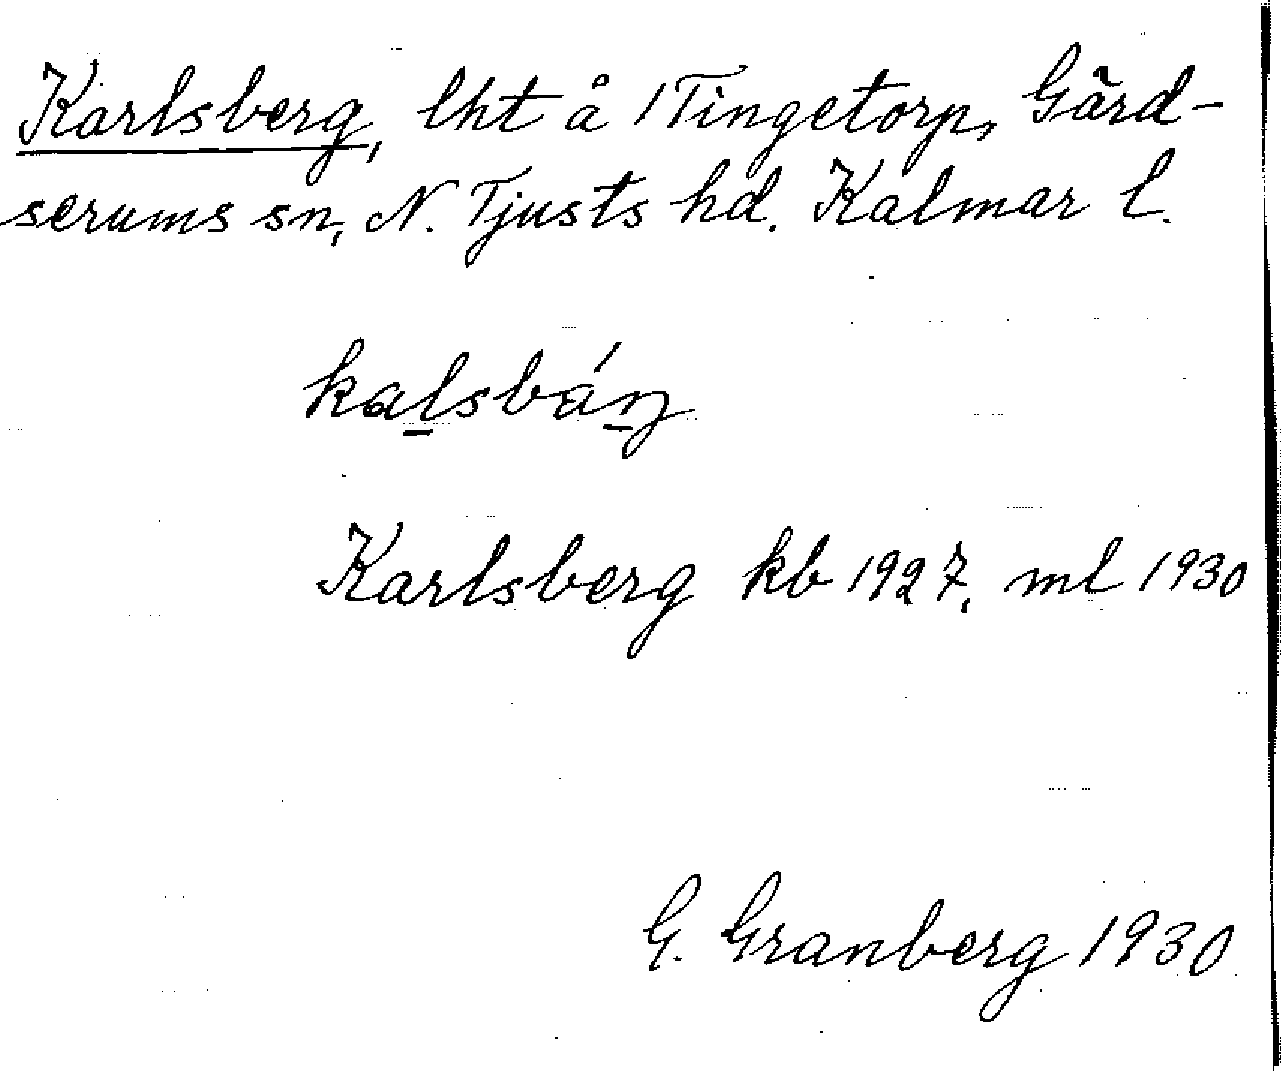 Karlsberg, lht å 1 Tingetorp, Gärd-
serums sn, N. Tjusts hd. Kalmar l.
Karlsberg kb 1927, ml 1930
G. Granberg 1930